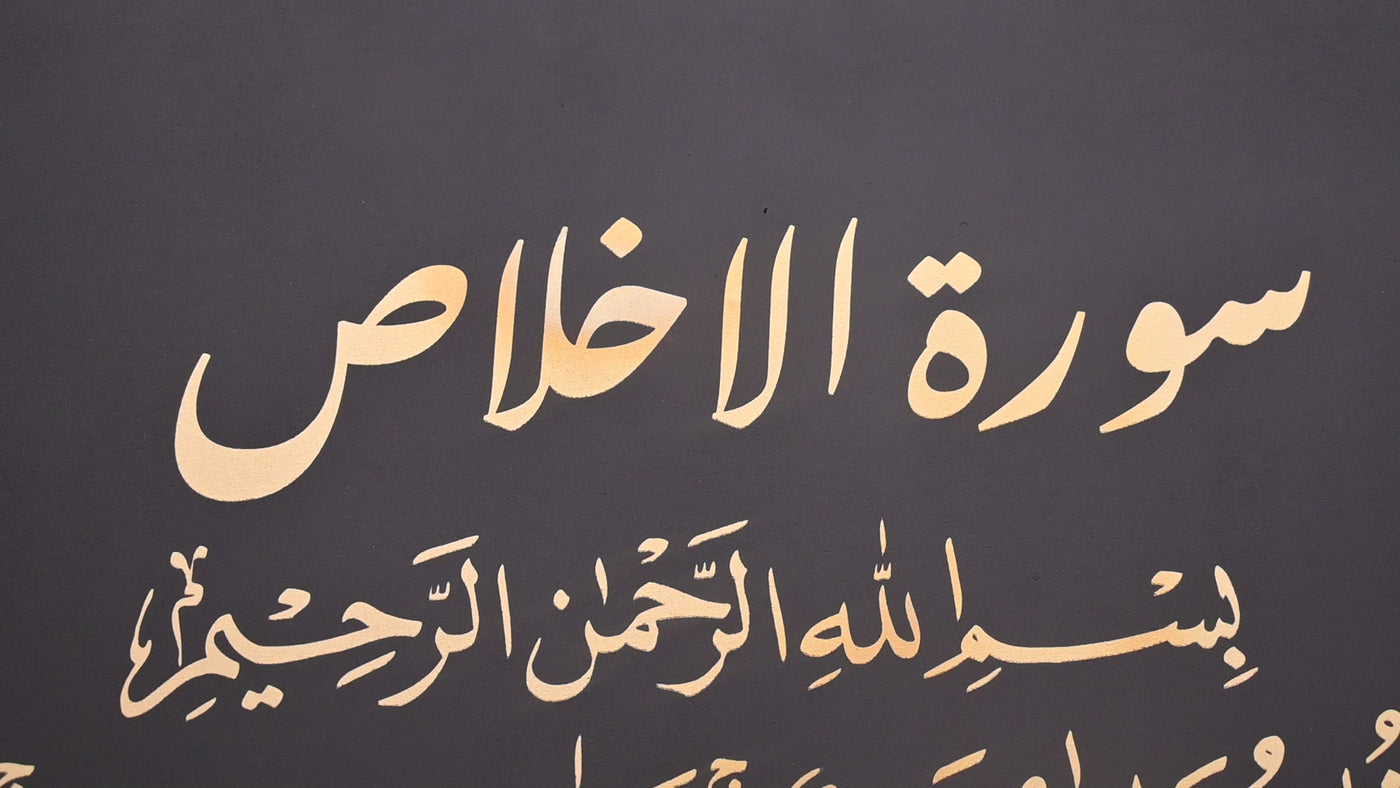 سورة الاخلاص
بِسْمِ اللهِ الرَّحْمٰنِ الرَّحِيْمِ